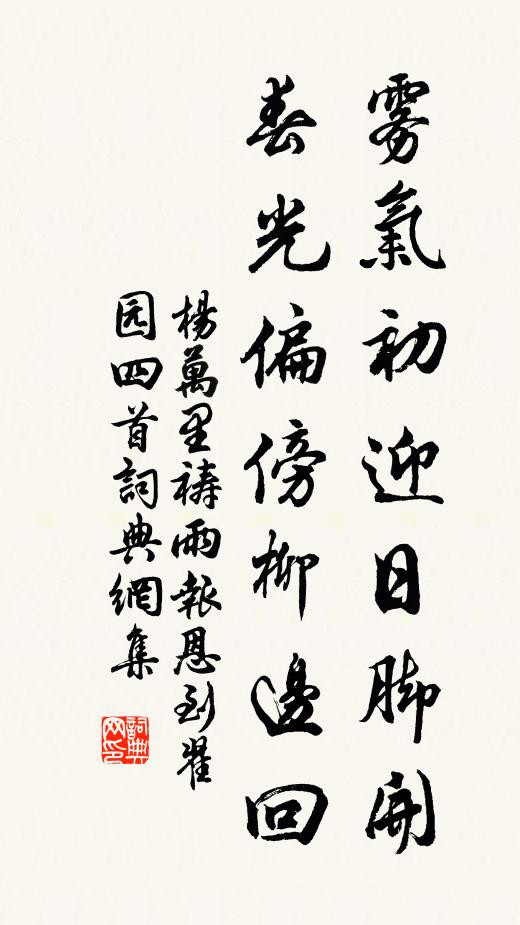 雾氣初迎日脚開
春光偏傍柳邊回
楊萬里禱雨報恩到翟
园四首詞典網集
詞典网印